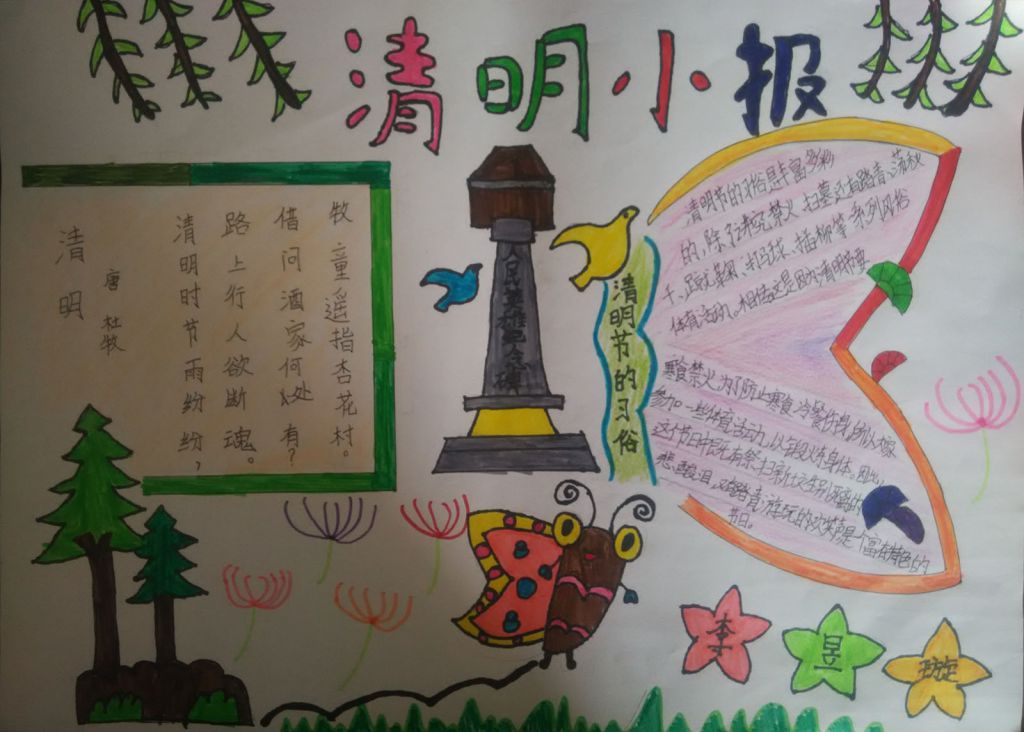 清明小报
清明
唐 杜牧
清明时节雨纷纷,
路上行人欲断魂。
借问酒家何处有?
牧童遥指杏花村。
人民英雄纪念碑
清明节的习俗
清明节的习俗是丰富多彩
的,除了讲究禁火、扫墓还有踏青、荡秋
千、蹴鞠、打马球、插柳等一系列风俗
体育活动。相传这是因为清明节要
寒食禁火,为了防止寒食冷餐伤身,所以大家
参加一些体育活动,以锻炼身体。因此,
这个节日中既有祭扫新坟生别死离的
悲酸泪,又有踏青游玩的欢笑声,是个富有特色的
节日。
李
昱
璇